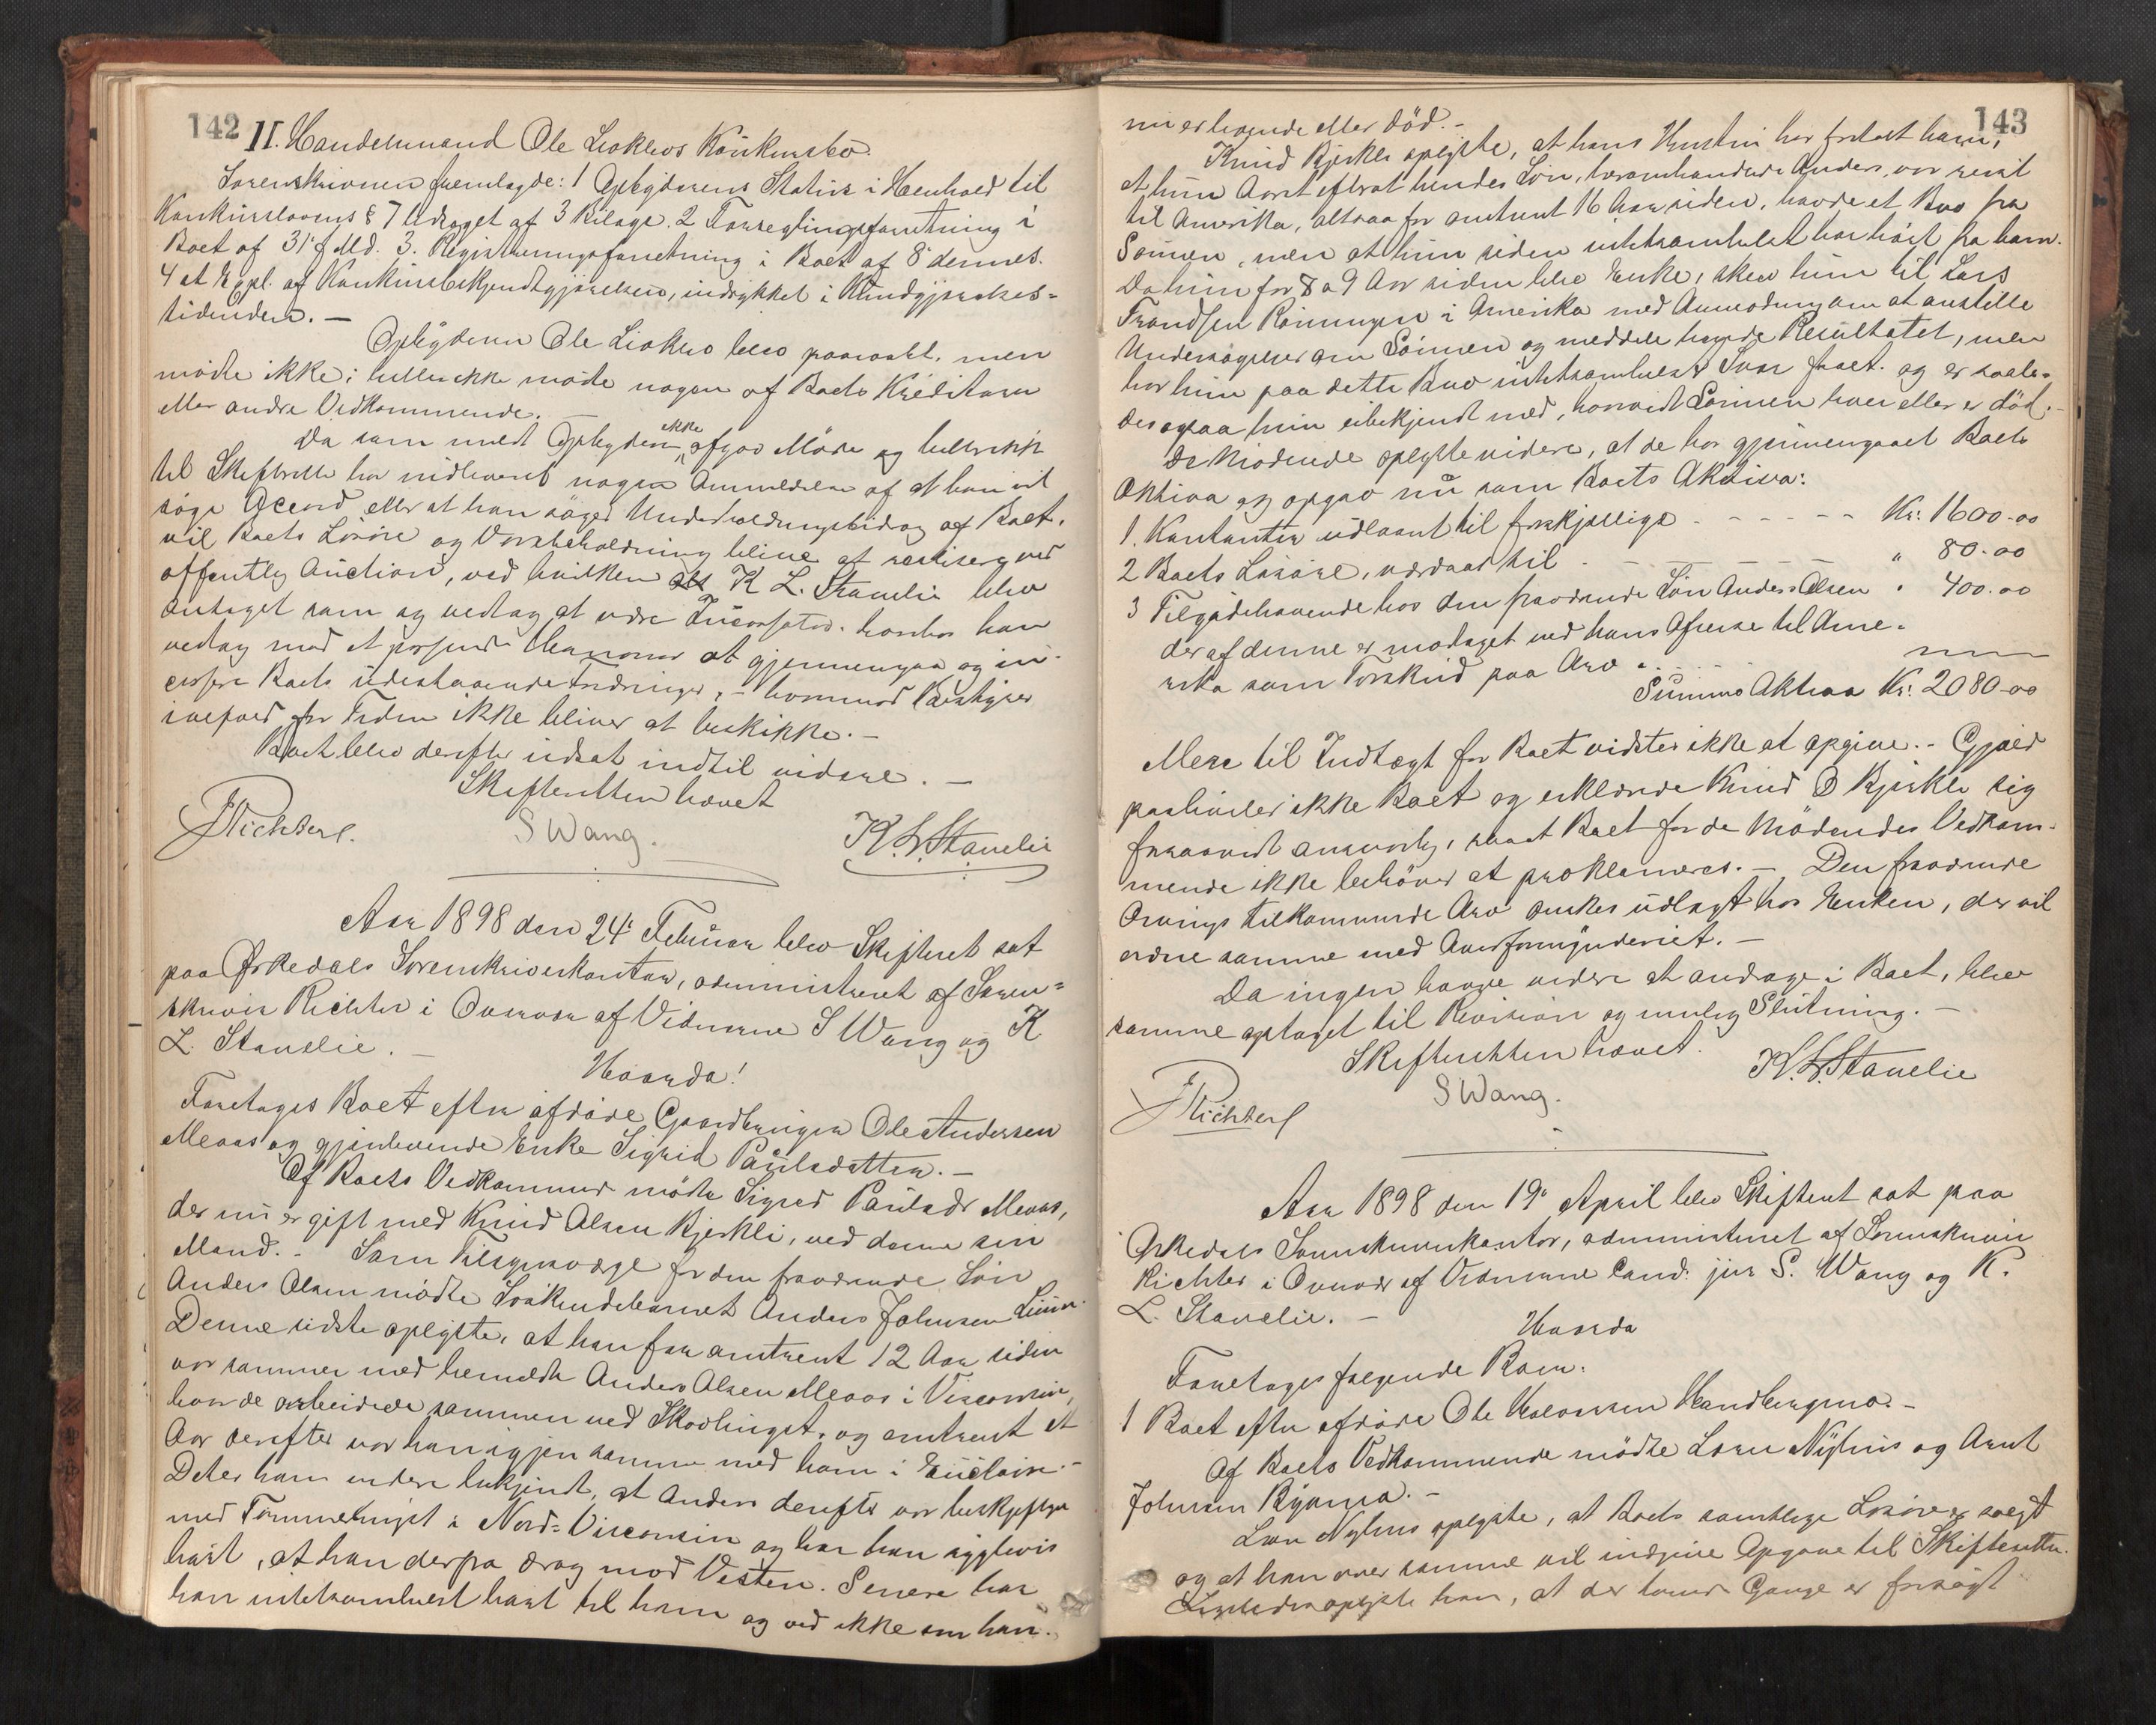 142
II. Handelsmand Ole Liaklevs Konkursbo.
Sorenskriveren fremlagde: 1 Opbyderens Status i Henhold til
Konkurslovens § 7 ledsaget af 3 Bilage. 2 Forseglingsforretning i
Boet af 31' f. Md. 3. Registreringsforretning i Boet af 8' dennes.
4 et Expl. af Konkursbekjendtgjørelsen, indrykket i Kundgjørelses-
tidenden. —
Opbyderen Ole Liaklev blev paaraabt, men
mødte ikke; heller ikke mødte nogen af Boets Kreditorer
eller andre Vedkommende. —
Da saa vidt Opbyderen ikke afgav Møde og heller ikke
til Skifteretten har indleveret nogen Anmeldelse af at han vil
søge Accord eller at han søger Underholdningsbidrag af Boet,
vil Boets Løsøre og Varebeholdning blive at realisere ved
offentlig Auction, ved hvilken K L. Stavelie blev
antaget som og vedtog at være Incassator. hvorhos han
vedtog mod et passende Honorar at gjennemgaa og in-
cassere Boets udestaaende Fordringer, – hvorimod Bestyrer
isaafald for Tiden ikke bliver at beskikke. —
Boet blev derefter udsat indtil videre. —
Skifteretten hævet
JRichter. S Wang. K. L. Stavelie
Aar 1898 den 24' Februar blev Skifteret sat
paa Ørkedals Sorenskriverkontor, administreret af Soren-
skriver Richter i Overvær af Vidnerne S Wang og K
L. Stavelie. —
Hvorda!
Foretoges Boet efter afdøde Gaardbruger Ole Andersen
Meaas og gjenlevende Enke Sigrid Paulsdatter. —
Af Boets Vedkommende mødte Sigrid Paulsdr Meaas,
der nu er gift med Knud Olsen Bjerkli, ved denne sin
Mand. – Som Tilsynsværge for den fraværende Søn
Anders Olsen mødte Søskendebarnet Anders Johnsen
Denne sidste oplyste, at han for omtrent 12 Aar siden
var sammen med bemeldte Anders Olsen Meaas i Visconsin,
hvor de arbeidede sammen ved Skovhugst, og omtrent et
Aar derefter var han igjen sammen med ham i Euclaire. –
Det er ham videre bekjendt, at Anders derefter var beskjeftiget
med Tømmerhugst i Nord-Visconsin og har han sigglevis
hørt, at han derfra drog mod Vesten. Senere har
han intetsomhelst hørt til ham og ved ikke om han
143
nu er levende eller død. –
Knud Bjerkli oplyste, at hans Hustru har fortalt ham,
at hun Aaret efterat hendes Søn, heromhandlede Anders, var reist
til Amerika, altsaa for omtrent 16 Aar siden, havde et Brev fra
Sønnen, men at hun siden intetsomhelst har hørt fra ham.
Da hun for 8 a 9 Aar siden blev Enke, skrev hun til Lars
Frandsen Rønningen i Amerika med Anmodning om at anstille
Undersøgelser om Sønnen og meddele hende Resultatet, men
har hun paa dette Brev intetsomhelst Svar faaet. og er saale-
des ogsaa hun ubekjendt med, hvorvidt Sønnen lever eller er død. –
De Mødende oplyste videre, at de har gjennemgaaet Boets
Aktiva og opgav nu som Boets Aktiva:
1. Kontanter udlaant til forskjellige - - - - - Kr: 1600-00
2 Boets Løsøre, værdsat til - - - - " 80-00
3 Tilgodehavende hos den fraværende Søn Anders Olsen " 400.00
der af denne er modtaget ved hans Afreise til Ame-
rika som Forskud paa Arv
Summa Aktiva Kr: 2080-00
Mere til Indtægt for Boet vidstes ikke at opgive. – Gjæld
paahviler ikke Boet og erklærede Knud O Bjerkli sig
forsaavidt ansvarlig, saaat Boet for de Mødendes Vedkom-
mende ikke behøver at proklameres. – Den fraværende
Arvings tilkommende Arv ønskes udlagt hos Enken, der vil
ordne samme med Overformynderiet. —
Da ingen havde videre at andrage i Boet, blev
samme optaget til Revision og mulig Slutning. —
Skifteretten hævet.
JRichter S Wang. K. L. Stavelie
Aar 1898 den 19' April blev Skifteret sat paa
Ørkedals Sorenskriverkontor, administreret af Sorenskriver
Richter i Overvær af Vidnerne Cand. jur S. Wang og K.
L. Stavelie. —
Hvorda
Foretoges følgende Boer:
1 Boet efter afdøde Ole Halvorsen
Af Boets Vedkommende mødte Lars Nyhus og Arnt
Johnsen
Lars Nyhus oplyste, at Boets samtlige Løsøre er solgt
og at han over samme vil indgive Opgave til Skifteretten.
oplyste han, at der Gange er forsøgt